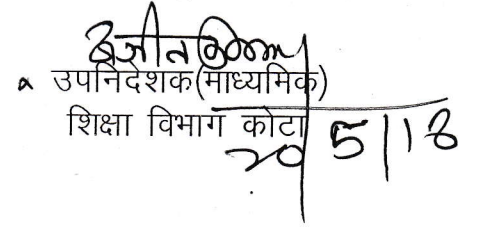 उपनिदेशक(माध्यमिक)
शिक्षा विभाग कोटा
20/5/18